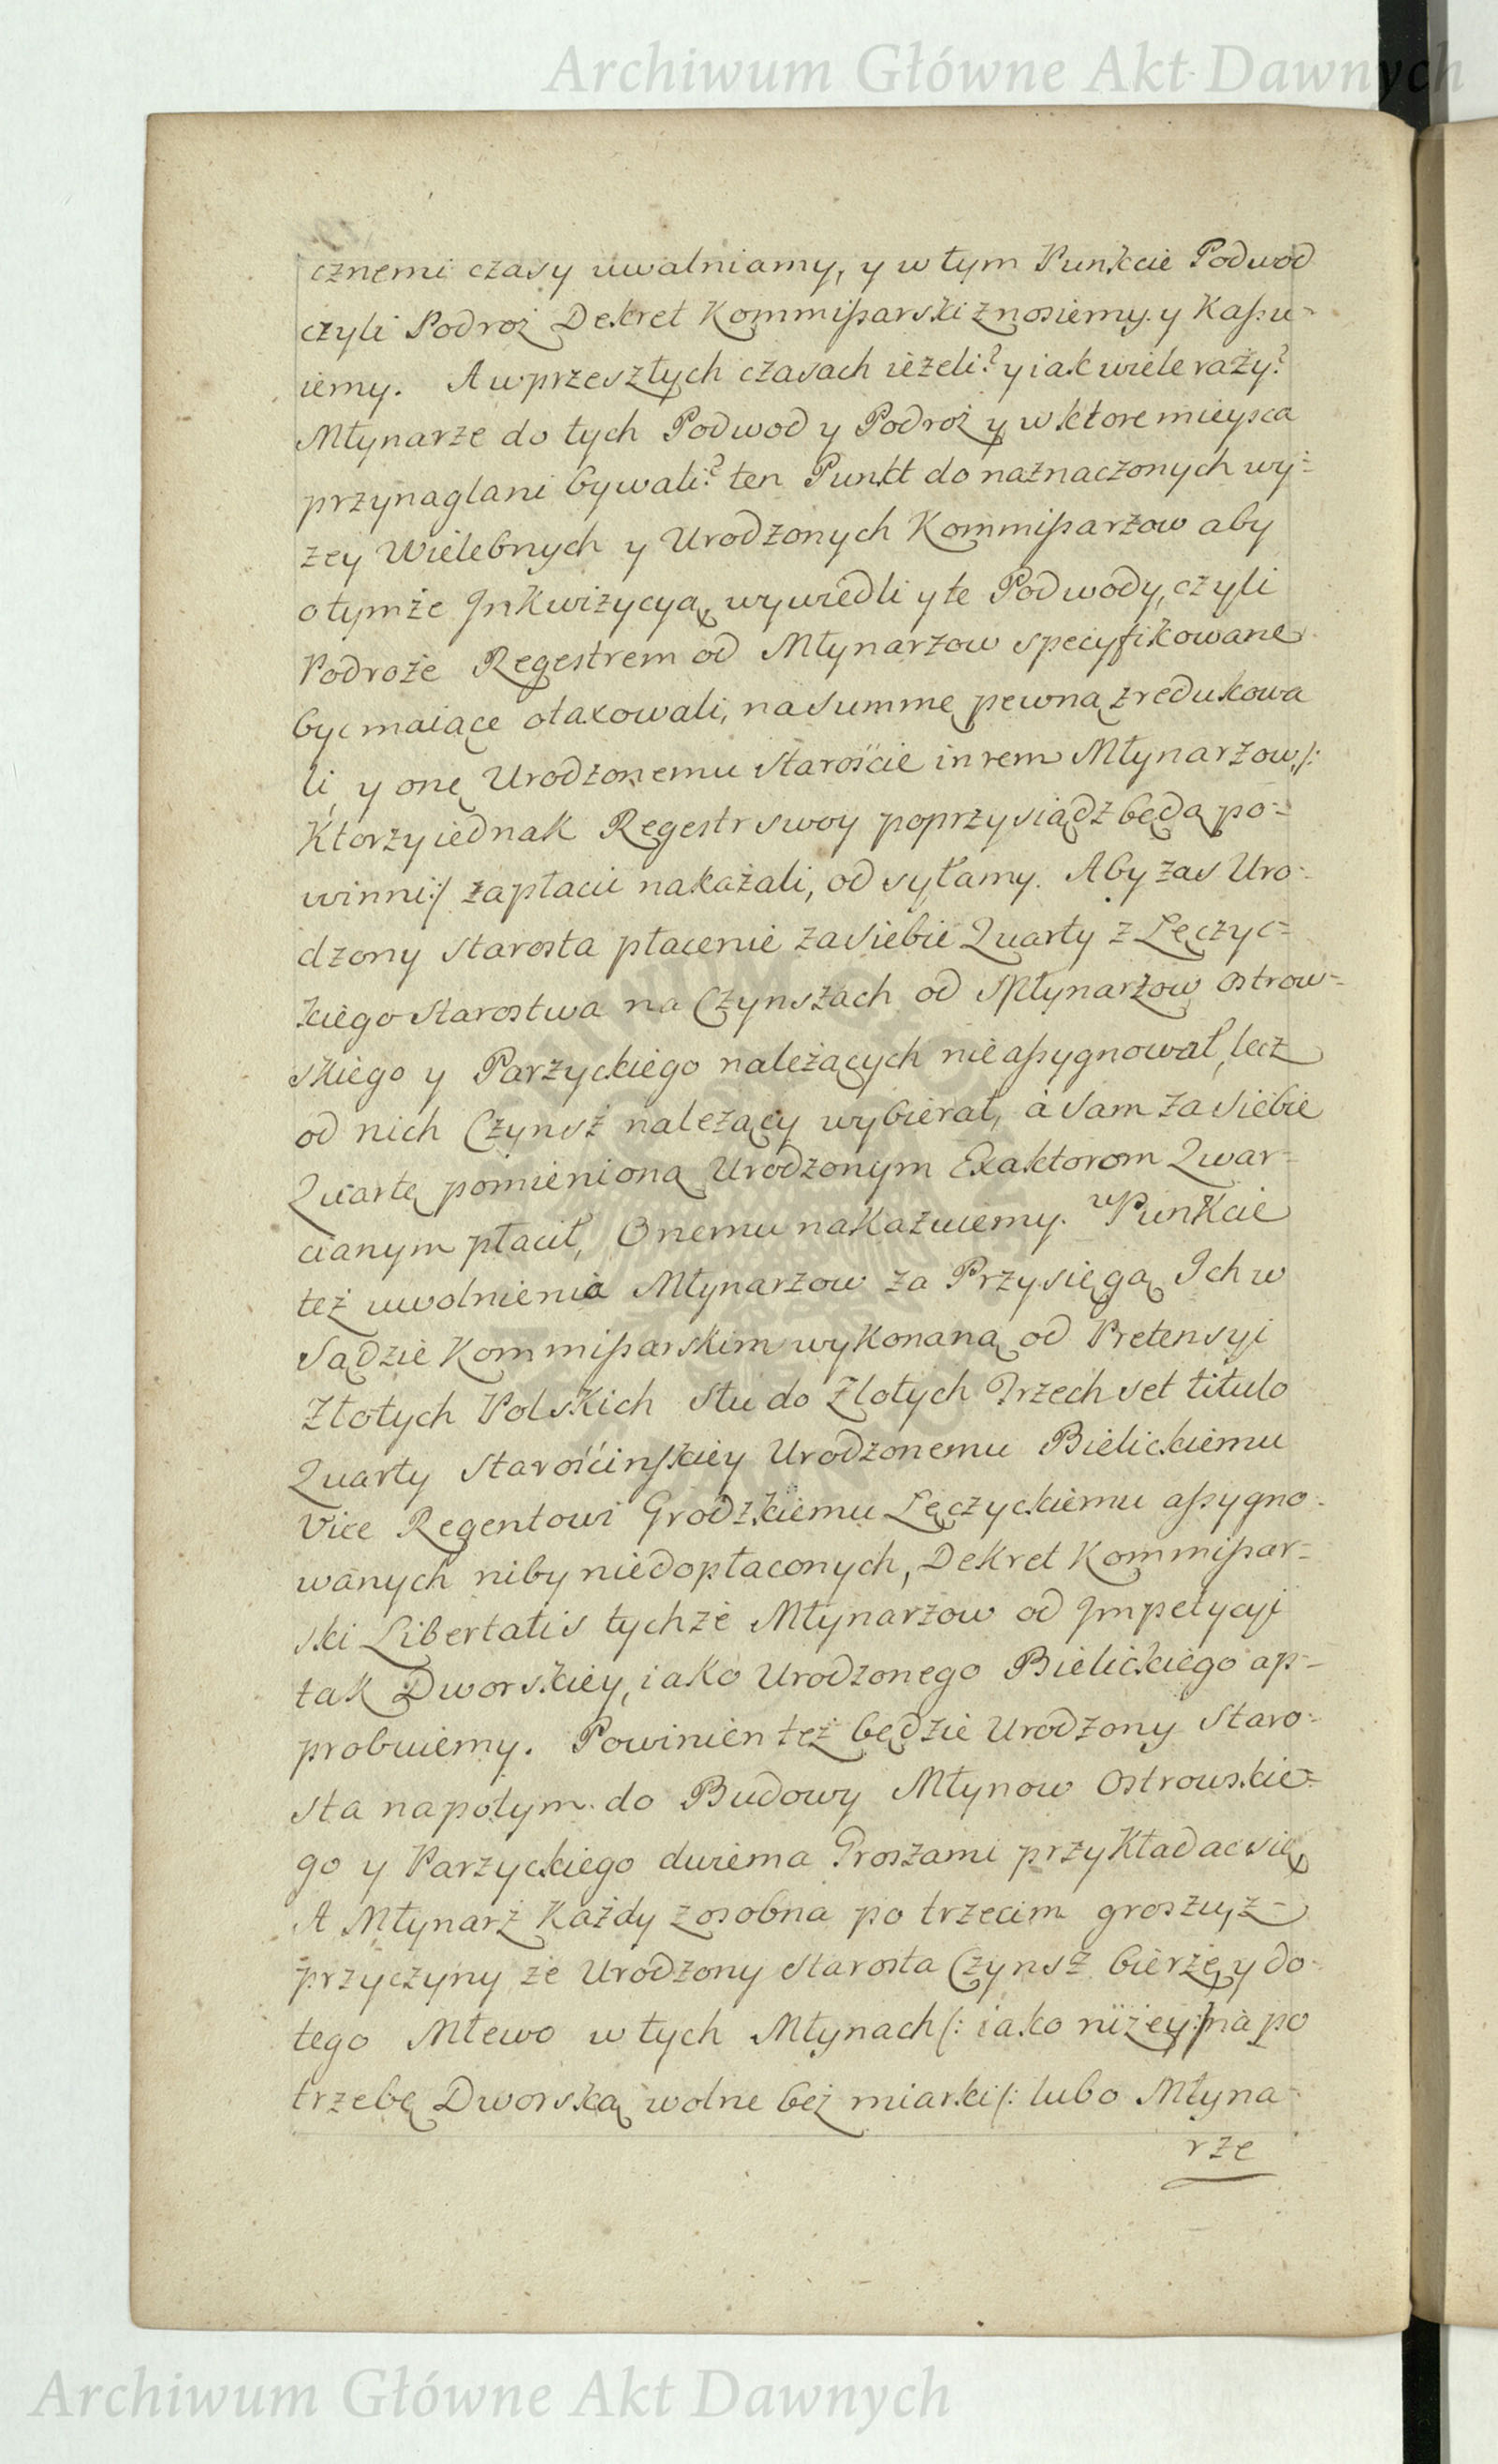 Archiwum Główne Akt Dawnych
cznemi czasy uwalniamy, y w tym Punkcie Podwod
czyli Podroż Dekret Kommißarski znosiemy y Kaßu-
iemy. A w przeszłych czasach ieżeli? y iak wiele razy?
Młynarze do tych Podwod y Podroż y w ktore mieysca
przynaglani bywali? ten Punkt do naznaczonych wy-
zey Wielebnych y Urodzonych Kommißarzow aby
o tymże Jnkwizycyą wywiedli y te Podwody, czyli
Podroże Regestrem od Młynarzow specyfikowane
byc maiące otaxowali, na summę pewną zredukowa
li, y onę Urodzonemu Staroście in rem Młynarzow /:
Ktorzy iednak Regestr swoy poprzysiądz będą po-
winni :/ zapłacic nakazali, odsyłamy. Aby zas Uro-
dzony Starosta płacenie za siebie Quarty z Łęczyc-
kiego Starostwa na Czynszach od Młynarzow Ostrow-
skiego y Parzyckiego należących nie aßygnował, lecz
od nich Czynsz nalezący wybierał, a sam za siebie
Quartę pomienioną Urodzonym Exaktorom Qwar-
cianym płacił, Onemu nakazuiemy. w Punkcie
też uwolnienia Młynarzow za Przysięgą Ich w
Sądzie Kommißarskim wykonaną od Pretensyi
Złotych Polskich stu do Złotych Trzechset titulo
Quarty Starościnskiey Urodzonemu Bielickiemu
Vice Regentowi Grodzkiemu Łęczyckiemu aßygno-
wanych niby niedopłaconych, Dekret Kommißar-
ski Libertatis tychże Młynarzow od Jmpetycyi
tak Dworskiey, iako Urodzonego Bielickiego ap-
probuiemy. Powinien też będzie Urodzony Staro-
sta na potym do Budowy Młynow Ostrowskie-
go y Parzyckiego dwiema Groszami przykładac się
A Młynarz Każdy z osobna po trzecim groszu, z
przyczyny ze Urodzony Starosta Czynsz bierze, y do
tego Mlewo w tych Młynach /: iako niżey :/ na po
trzebę Dworską wolne bez miarki /: lubo Młyna-
rze
Archiwum Główne Akt Dawnych